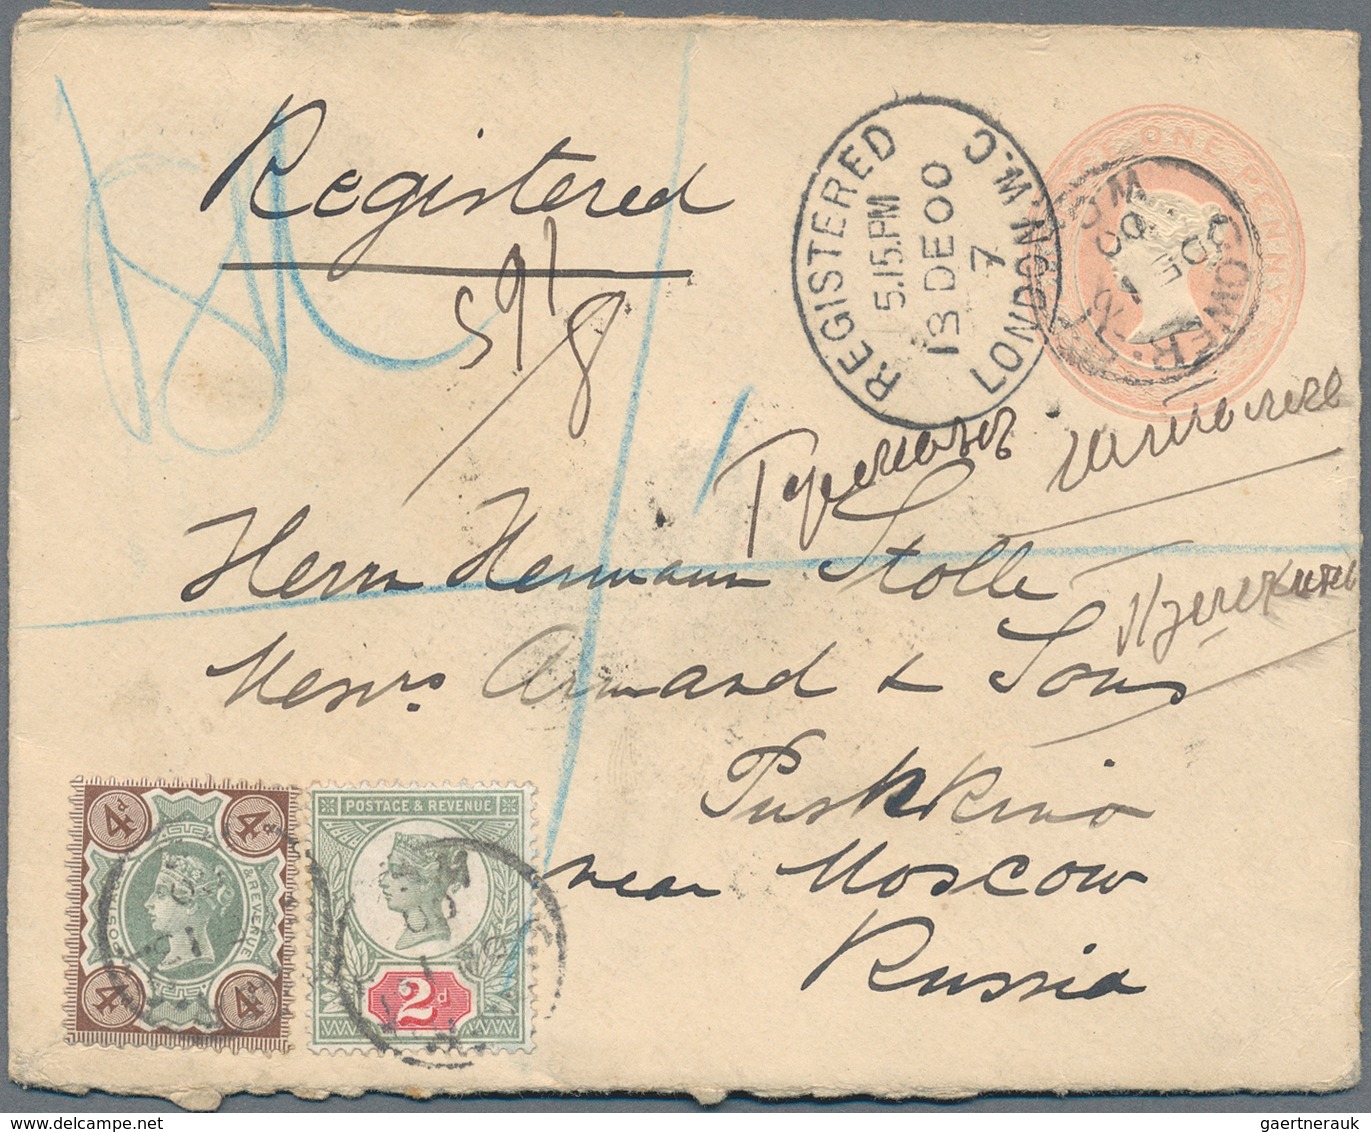 Registered
591
8
REGISTERED
5.15.PM
13 DE 00
7
LONDON.W.C.
ONE PENNY
GOWER
DE 1
00
Herrn Hermann Stolle
Messrs Armand & Sons
Puskkino
near Moscow
Russia
4d 4d
POSTAGE & REVENUE
4d 4d
POSTAGE & REVENUE
2d
gaertnerauk